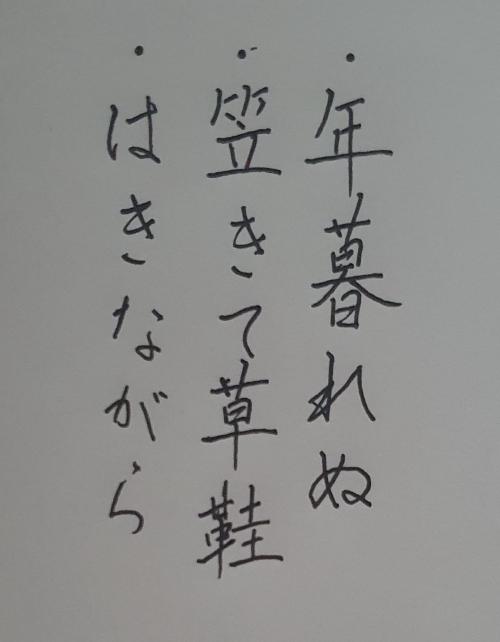 ・年暮れぬ
・笠きて草鞋
・はきながら